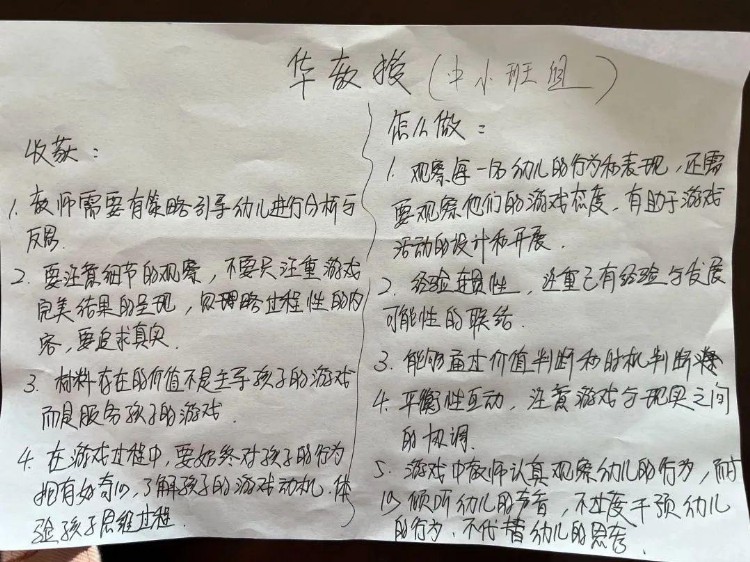 华教授（中小班组）
收获：
1. 教师需要有策略引导幼儿进行分析与
反思.
2. 要注意细节的观察，不要只注重游戏
完美结果的呈现，忽略过程性的内
容，要追求真实.
3. 材料存在的价值不是主导孩子的游戏
而是服务孩子的游戏.
4. 在游戏过程中，要始终对孩子的行为
拥有好奇心，了解孩子的游戏动机.体
验孩子思维过程.
怎么做：
1. 观察每一名幼儿的行为和表现，还需
要观察他们的游戏态度，有助于游戏
活动的设计和开展.
2. 经验连续性，注重已有经验与发展
可能性的联结.
3. 能够通过价值判断和时机判断
4. 平衡性互动，注意游戏与现实之间
的协调.
5. 游戏中教师认真观察幼儿的行为，耐
心倾听幼儿的声音，不过度干预幼儿
的行为.不代替幼儿的思考.